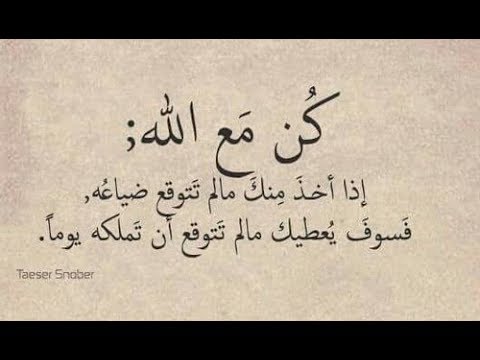 كُن مَع الله;
إذا أخذَ مِنكَ مالم تَتوقع ضياعُه,
فَسوفَ يُعطيك مالم تَتوقع أن تَملكه يوماً.
Taeser Snober